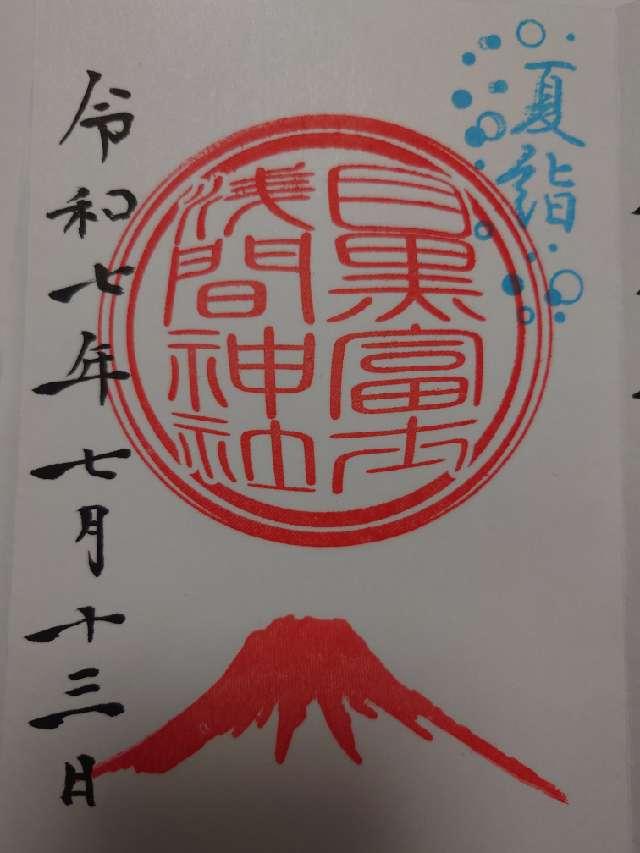 夏詣
目黒富士
浅間神社
令和七年七月十三日